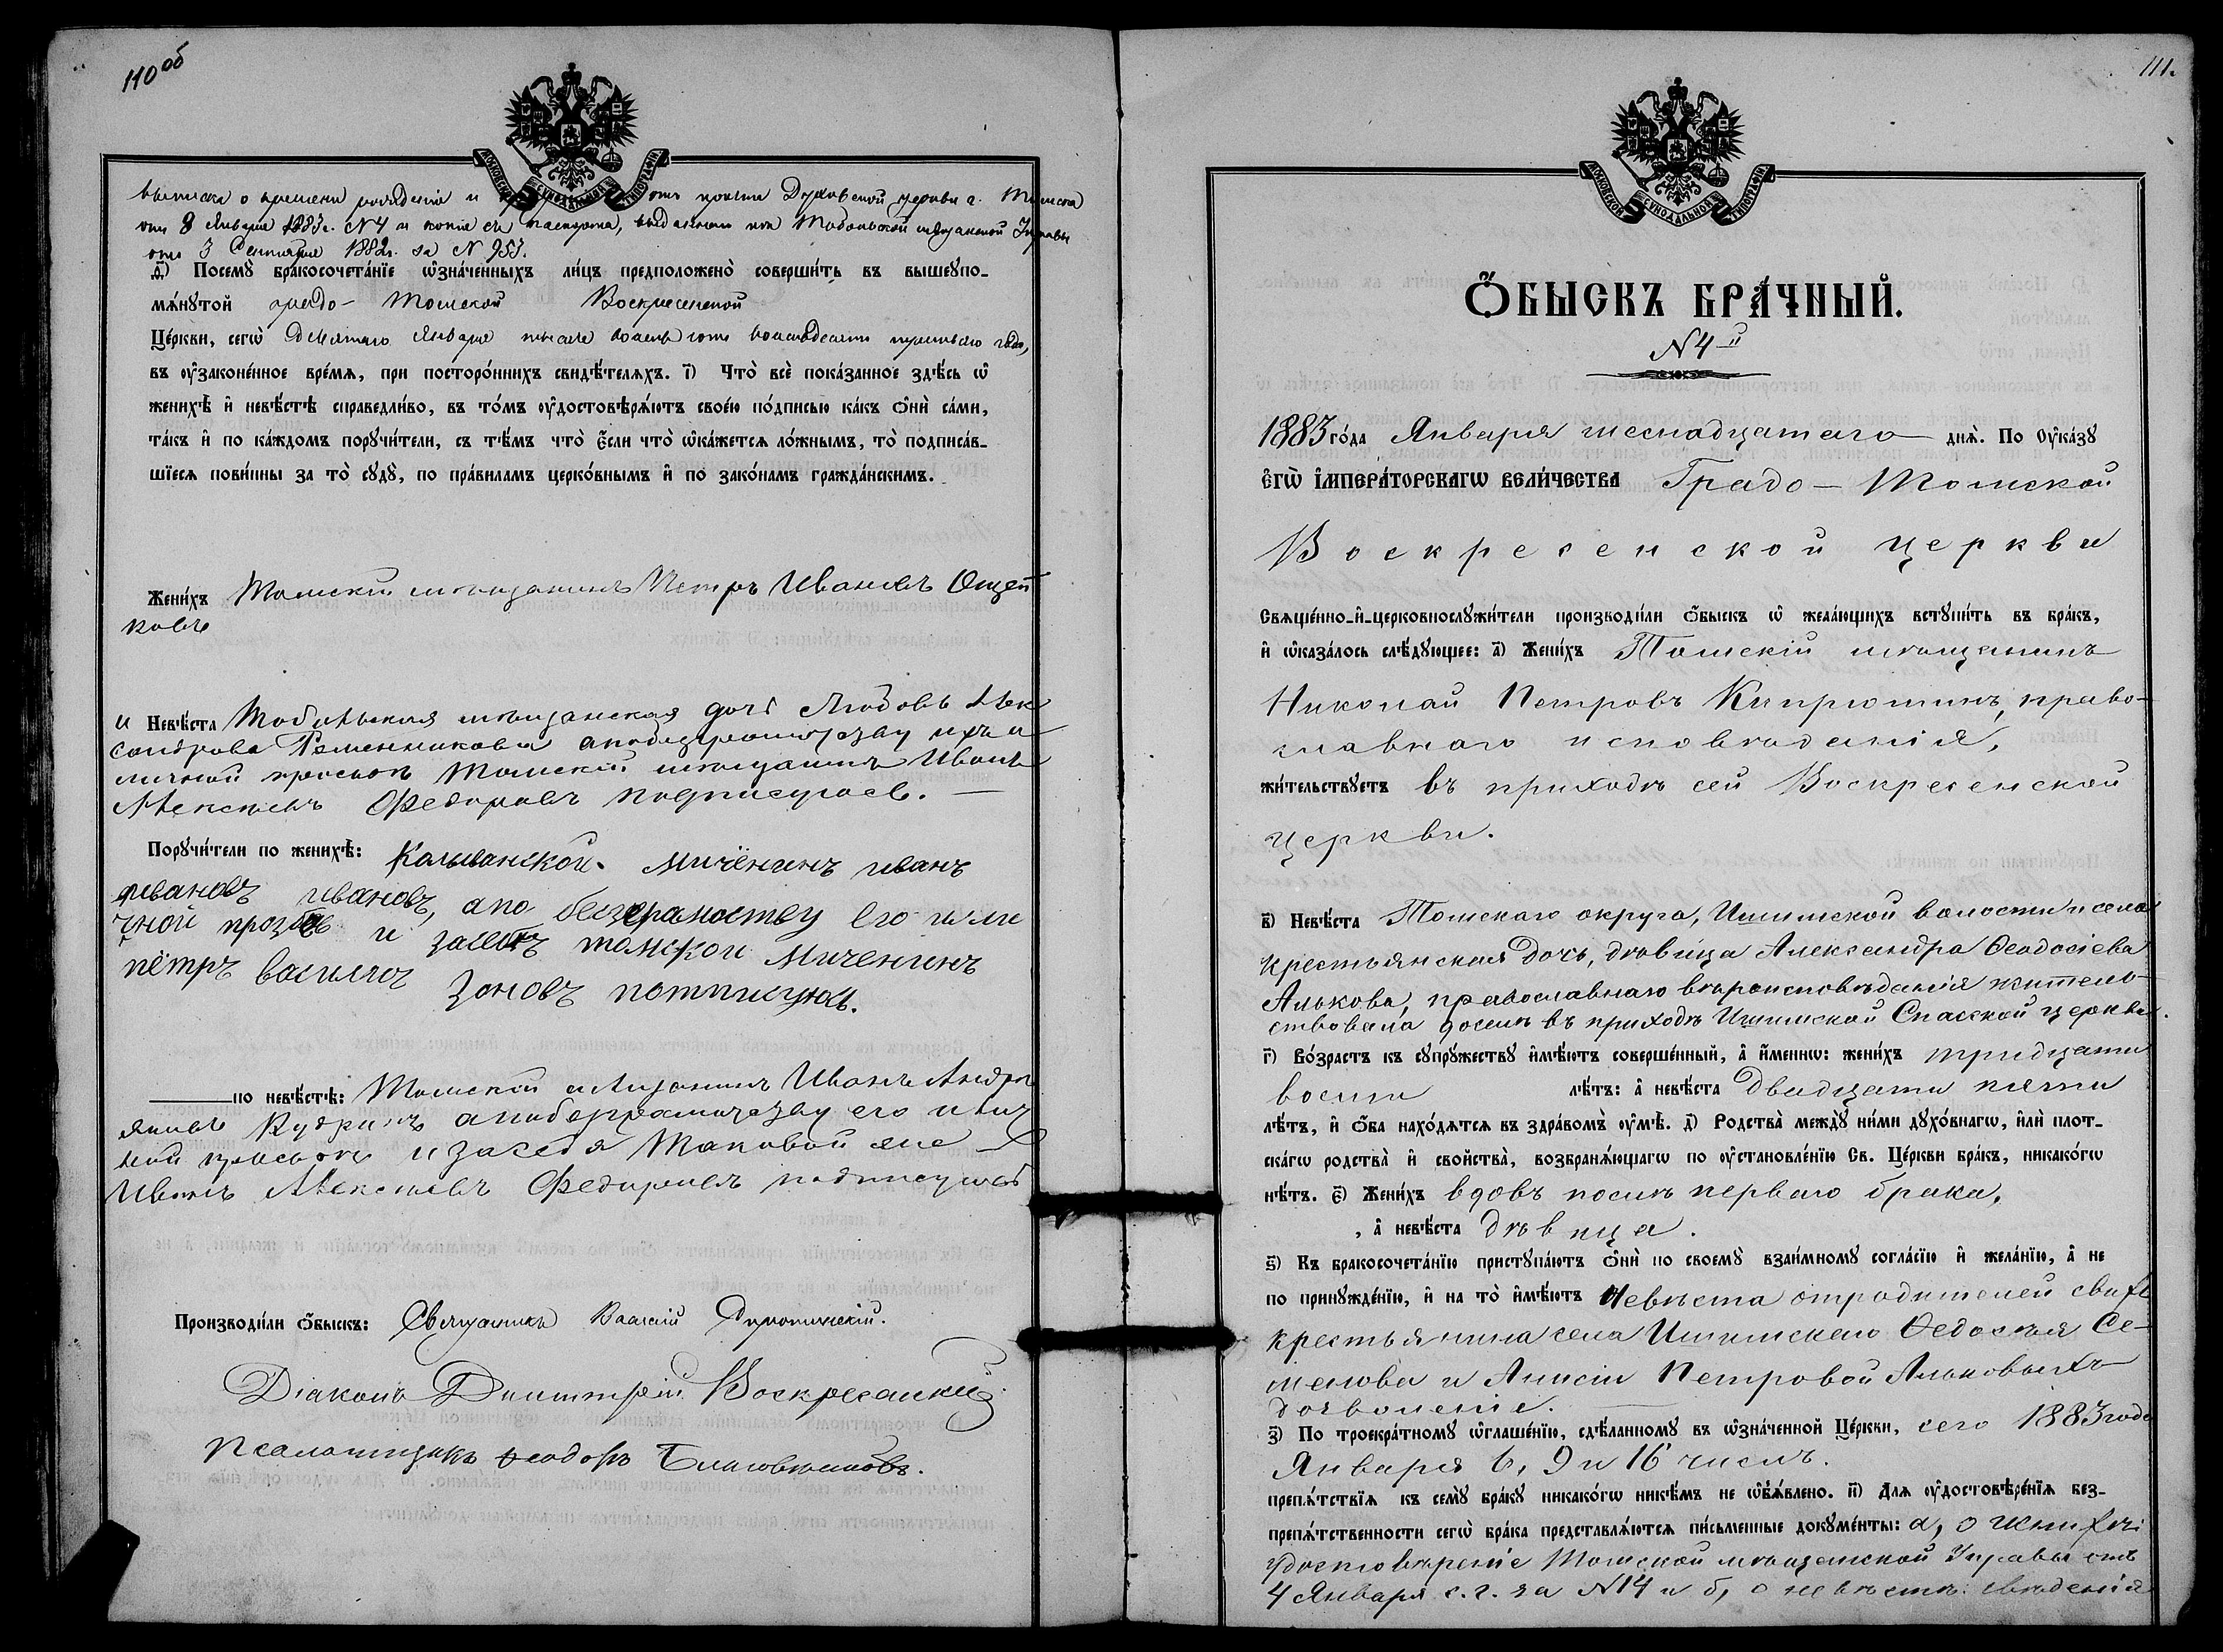 110 об
МОСКОВСКОЙ СУНОДАЛЬНОЙ ТИПОГРАФІИ
выписка о времени рожденія и отъ причта Духовской церкви г. Томска
отъ 8 Января 1883 г. № 4 и копіе съ паспорта, выданнаго изъ Тобольской мѣщанской Управы
отъ 3 Сентября 1882 г. за № 953.
д҃) Посемꙋ̀ бракосочета́нїе ѡ҆зна́ченныхъ ли́цъ предположено̀ соверши́ть въ вышеꙋпо-
мѧ́нꙋтой градо-Томской Воскресенской
Це́ркви, сегѡ̀ девятаго Января тысяча восемьсотъ восемьдесятъ третьяго года,
въ ᲂу҆зако́ненное вре́мѧ, при посторо́ннихъ свидѣ́телѧхъ. і҃) Что̀ всѐ пока́занное здѣ́сь ѡ҆
женихѣ̀ и҆ невѣ́стѣ справедли́во, въ то́мъ ᲂу҆достовѣрѧ́ютъ свое́ю по́дписью ка́къ ѻ҆нѝ са́ми,
та́къ и҆ по ка́ждомъ порꙋчи́тели, съ тѣ́мъ что̀ є҆́сли что̀ ѡ҆ка́жетсѧ ло́жнымъ, то̀ подписа́в-
шїесѧ пови́нны за то̀ сꙋдꙋ̀, по пра́виламъ церко́внымъ и҆ по зако́намъ гражда́нскимъ.
Жени́хъ Томский мѣщанинъ Петръ Ивановъ Ощеп
ковъ
и Невѣ́ста Тобольская мѣщанская дочь Любовь Алек
сандрова
личной просьбѣ Томскій мѣщанинъ Иванъ
Алексѣевъ Федоровъ подписуюсь.
Порꙋчи́тели по женихѣ̀: Калыванской. мичёнинъ иванъ
ивановъ ивановъ, апо безграмоству его илич
чной прозбе и засебѣ томскои миченинъ
пётръ василяч Зоновъ потписуюсь.
по невѣ́стѣ: Томскій мѣщанинъ Иванъ Андре
яновъ Кудринъ
ной прозьбѣ и засебя Таковой же
Иванъ Алексѣевъ Федоровъ подписуюсь
Производи́ли ѻ҆́быскъ: Священникъ Василій
Діаконъ Димитрій Воскресенскій
Псаломщикъ Ѳеодоръ
111.
МОСКОВСКОЙ СУНОДАЛЬНОЙ ТИПОГРАФІИ
Ѻ҆́БЫСКЪ БРА́ЧНЫЙ.
№ 4й
1883 го́да Января шеснадцатаго днѧ̀. По Оу҆ка́зꙋ
Є҆ГѠ̀ И҆МПЕРА́ТОРСКАГѠ ВЕЛИ́ЧЕСТВА Градо-Томской
Воскресенской церкви
Свѧще́нно-и҆-церковнослꙋжи́тели производи́ли ѻ҆́быскъ ѡ҆ жела́ющихъ встꙋпи́ть въ бра́къ,
и҆ ѡ҆каза́лось слѣ́дꙋющее: а҃) Жени́хъ Томскій мѣщанинъ
Николай Петровъ Кипрюшинъ, право-
славнаго исповѣданія,
жи́тельствꙋетъ въ приходѣ сей Воскресенской
церкви.
в҃) Невѣ́ста Томскаго округа, Ишимской волости и села
крестьянская дочь, дѣвица Александра Ѳеодосіева
Алькова, православнаго вѣроисповѣданія жительс-
ствовала доселѣ въ приходѣ Ишимской Спасской церкви.
г҃) Во́зрастъ къ сꙋпрꙋ́жествꙋ и҆мѣ́ютъ соверше́нный, а҆ и҆́меннѡ: жени́хъ тридцати
восьми лѣ́тъ: а҆ невѣ́ста двадцати пяти
лѣ́тъ, и҆ ѻ҆́ба нахо́дѧтсѧ въ здра́вомъ ᲂу҆мѣ̀. д҃) Родства̀ междꙋ̀ ни́ми дꙋхо́внагѡ, и҆лѝ плот-
ска́гѡ родства̀ и҆ свойства̀, возбранѧ́ющагѡ по ᲂу҆становле́нїю Св. Це́ркви бра́къ, никако́гѡ
нѣ́тъ. є҃) Жени́хъ вдовъ послѣ перваго брака,
, а҆ невѣ́ста дѣвица.
ѕ҃) Къ бракосочета́нїю пристꙋпа́ютъ ѻ҆нѝ по своемꙋ̀ взаи́мномꙋ согла́сїю и҆ жела́нїю, а҆ не
по принꙋжде́нїю, и҆ на то̀ и҆мѣ́ютъ Невѣста отъ родителей своихъ
крестьянина села Ишимскаго Ѳедосѣя Се-
менова и Анисіи Петровой Альковыхъ
дозволеніе.
з҃) По троекра́тномꙋ ѡ҆глаше́нїю, сдѣ́ланномꙋ въ ѡ҆зна́ченной Це́ркви, сего 1883 года
Января 6, 9 и 16 чиселъ.
препѧ́тствїѧ къ семꙋ̀ бра́кꙋ никако́гѡ никѣ́мъ не ѡ҆б̾ѧ́влено. и҃) Длѧ ᲂу҆достовѣре́нїѧ без-
препѧ́тственности сегѡ̀ бра́ка представлѧ́ютсѧ пи́сьменные докꙋме́нты: а, о женихѣ:
удостовѣреніе Томской мѣщанской Управы отъ
4 Января с. г. за № 14 и б, о невѣстѣ: свѣденія